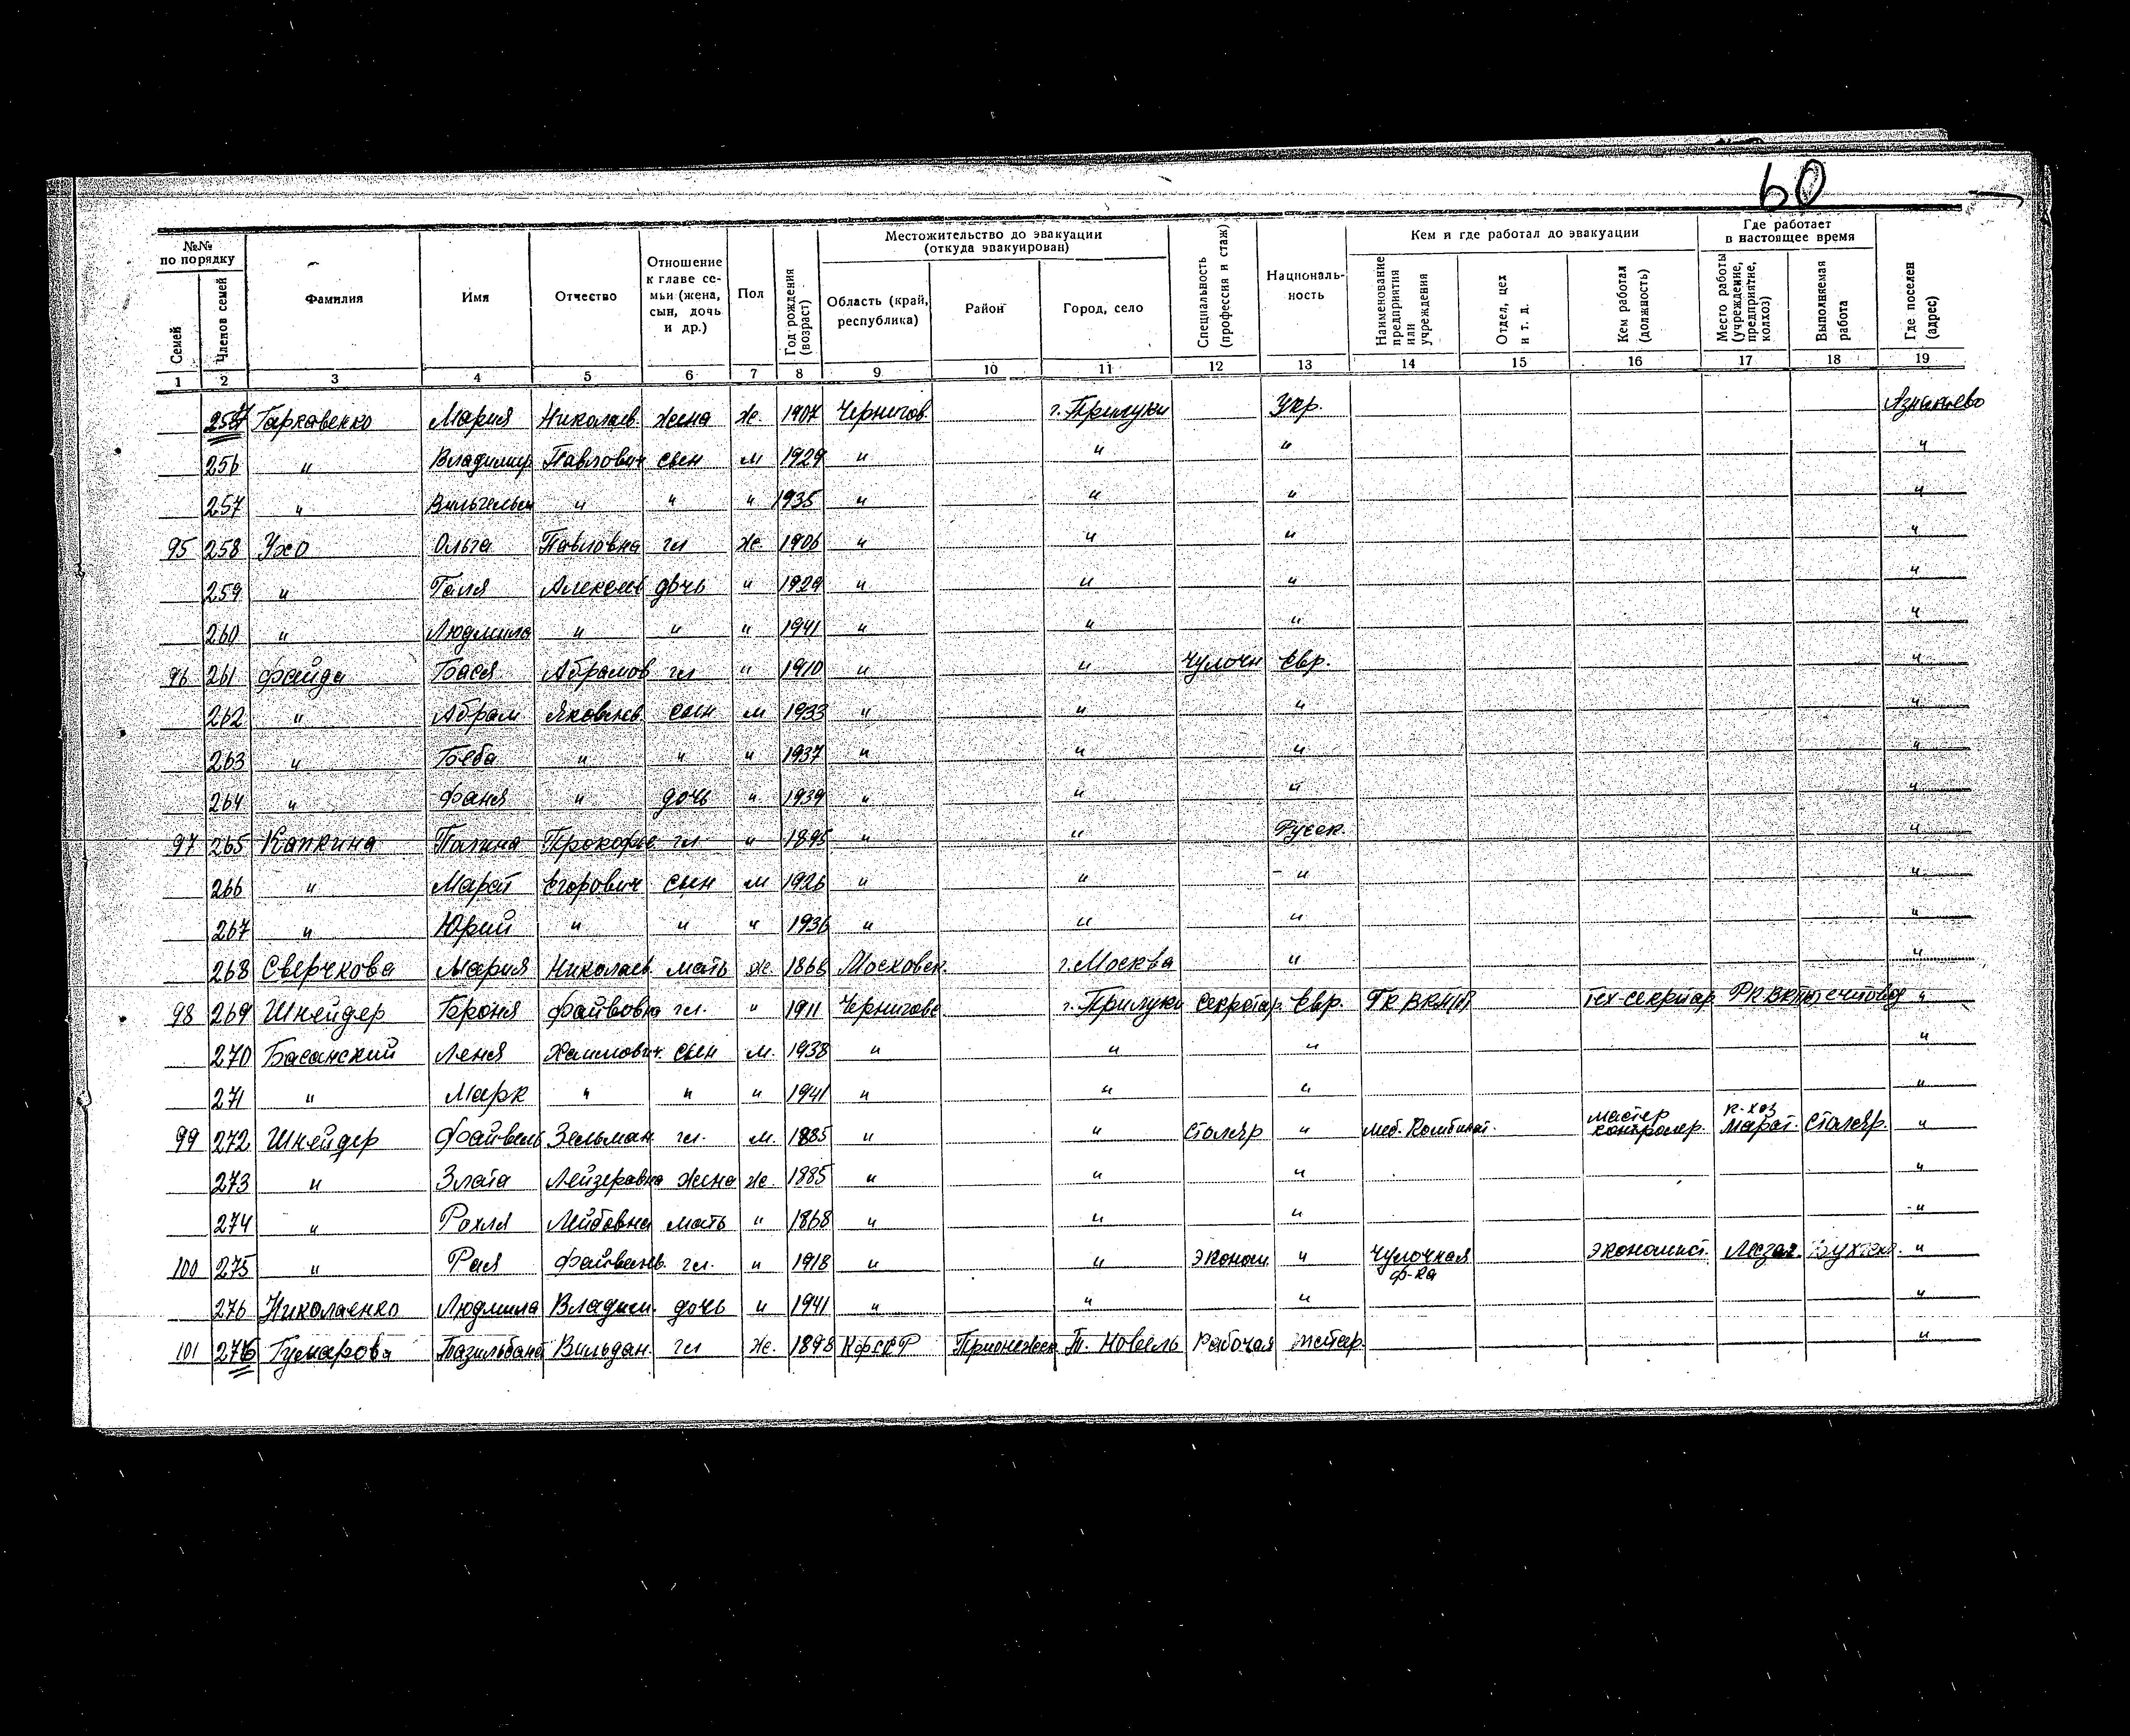 60
№№ по порядку
Фамилия
Имя
Отчество
Отношение к главе семьи (жена, сын, дочь и др.)
Пол
Год рождения (возраст)
Местожительство до эвакуации (откуда эвакуирован)
Специальность (профессия и стаж)
Националь-ность
Кем и где работал до эвакуации
Где работает в настоящее время
Где поселен (адрес)
Семей
Членов семей
Область (край, республика)
Район
Город, село
Наименование предприятия или учреждения
Отдел, цех и т. д.
Кем работал (должность)
Место работы (учреждение, предприятие, колхоз)
Выполняемая работа
1 2 3 4 5 6 7 8 9 10 11 12 13 14 15 16 17 18 19
Гаркавенко Мария Николаев. жена ж. 1907 Чернигов. г. Прилуки Укр. Азнакаево
256 " Владимир Павлович сын м 1929 " " " "
257 " Вильгельм " " " 1935 " " " "
95 258 Ухо Ольга Павловна гл ж. 1906 " " " "
259 " Галя Алексеев дочь " 1929 " " " "
260 " Людмила " " " 1941 " " " "
96 261 Файда Бася Абрамов гл " 1910 " " Чулочн Евр. "
262 " Абрам Яковлев. сын м 1933 " " " "
263 " Беба " " " 1937 " " " "
264 " Фаня " дочь " 1939 " " " "
97 265 Капкина Прокофье гл " 1895 " " Русск. "
266 " Марат Егорович сын м 1926 " " " "
267 " Юрий " " " 1936 " " " "
268 Сверчкова Мария Николаев. мать ж. 1868 Московск. г. Москва " "
98 269 Шнейдер Броня Файвовна гл. " 1911 Чернигов г. Прилуки Секретар. Евр. ГК ВКП(б) тех-секретар. РК ВКП счетовод "
270 Басанский Леня Хаимович сын м. 1938 " " " "
271 " Марк " " " 1941 " " " "
99 272 Шнейдер Файвель Зельман гл. м. 1885 " " Столяр " меб. Комбинат. мастер контролер. к-хоз Марат. Столяр. "
273 " Злата Лейзеровна жена ж. 1885 " " " "
274 " Рохля Лейбовна мать " 1868 " " " "
100 275 " Рая Файвелев. гл. " 1918 " " Эконом. " Чулочная ф-ка экономист. "
276 Николаенко Людмила Владим. дочь " 1941 " " " "
101 Гумарова Вильдан. гл ж. 1898 КфССР Прионежск Рабочая "